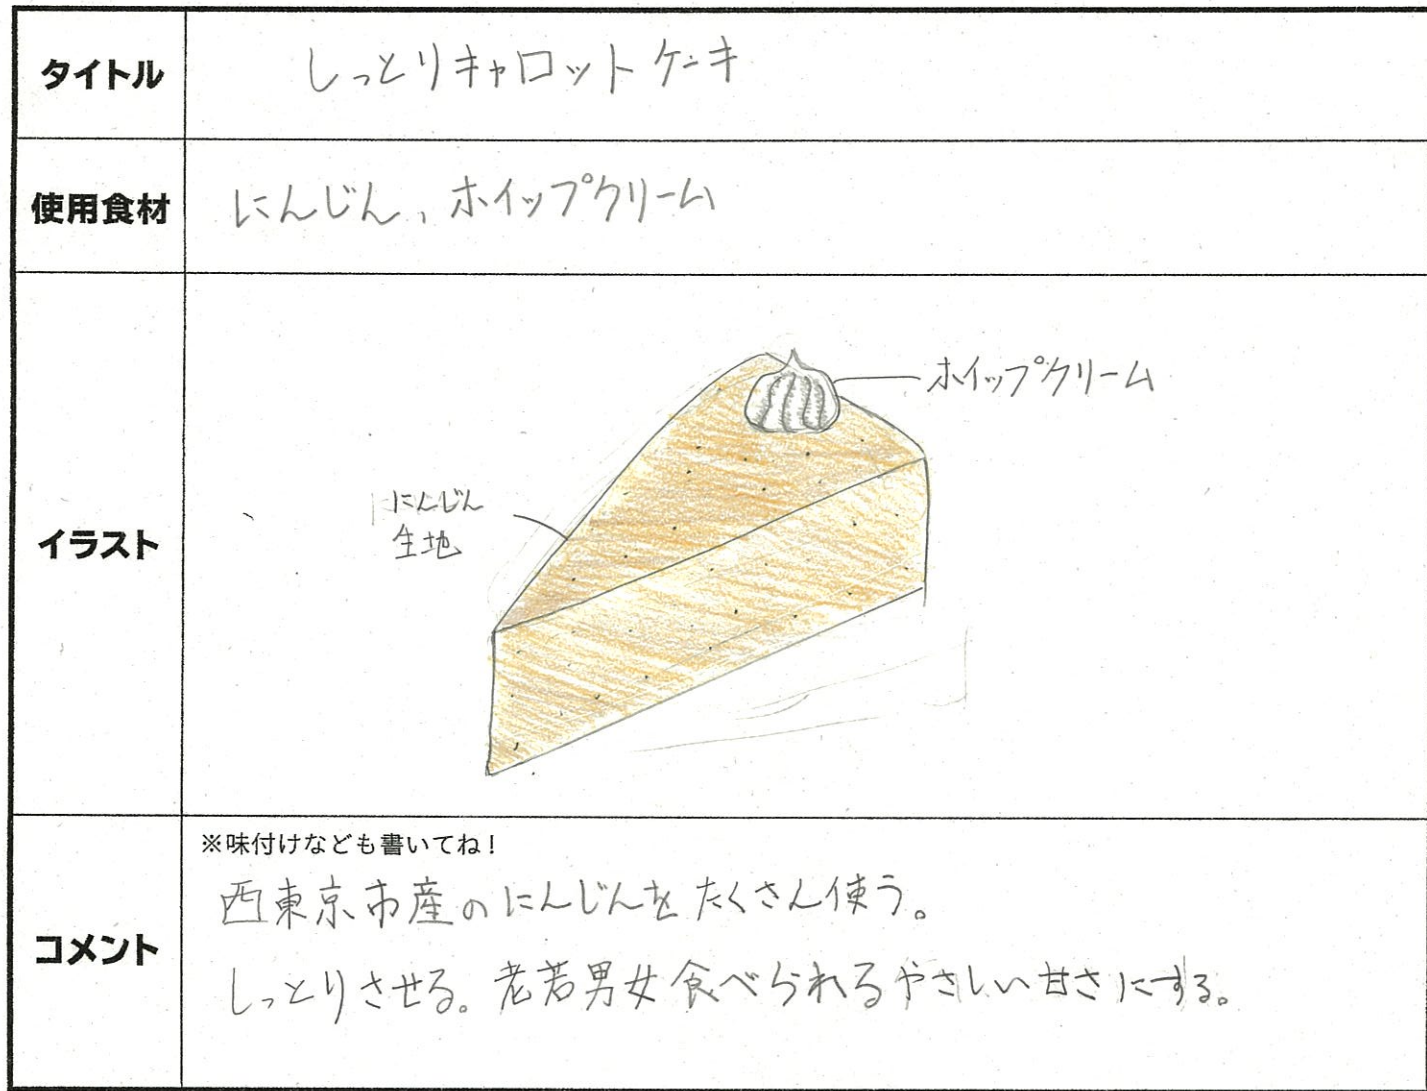 タイトル
しっとりキャロットケーキ
使用食材
にんじん、ホイップクリーム
イラスト
ホイップクリーム
にんじん
生地
コメント
※味付けなども書いてね！
西東京市産のにんじんをたくさん使う。
しっとりさせる。老若男女食べられるやさしい甘さにする。